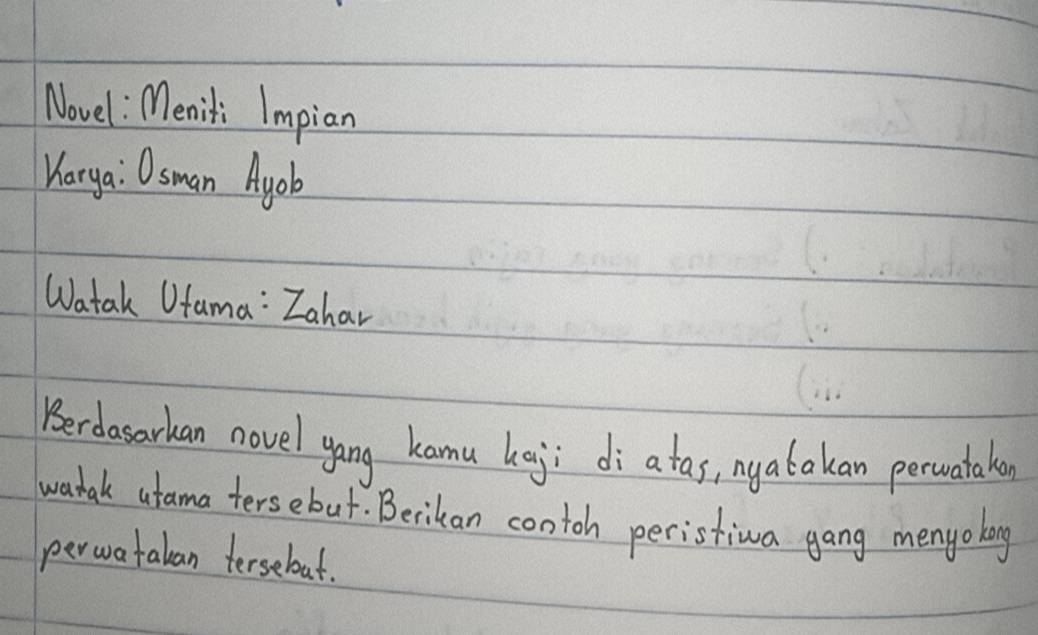 Novel: Meniti Impian
Karya: Osman Ayob
Watak Utama: Zahar
Berdasarkan novel yang kamu kaji di atas, nyatakan perwatakan
watak utama tersebut. Berikan contoh peristiwa yang menyokong
perwatakan tersebut.